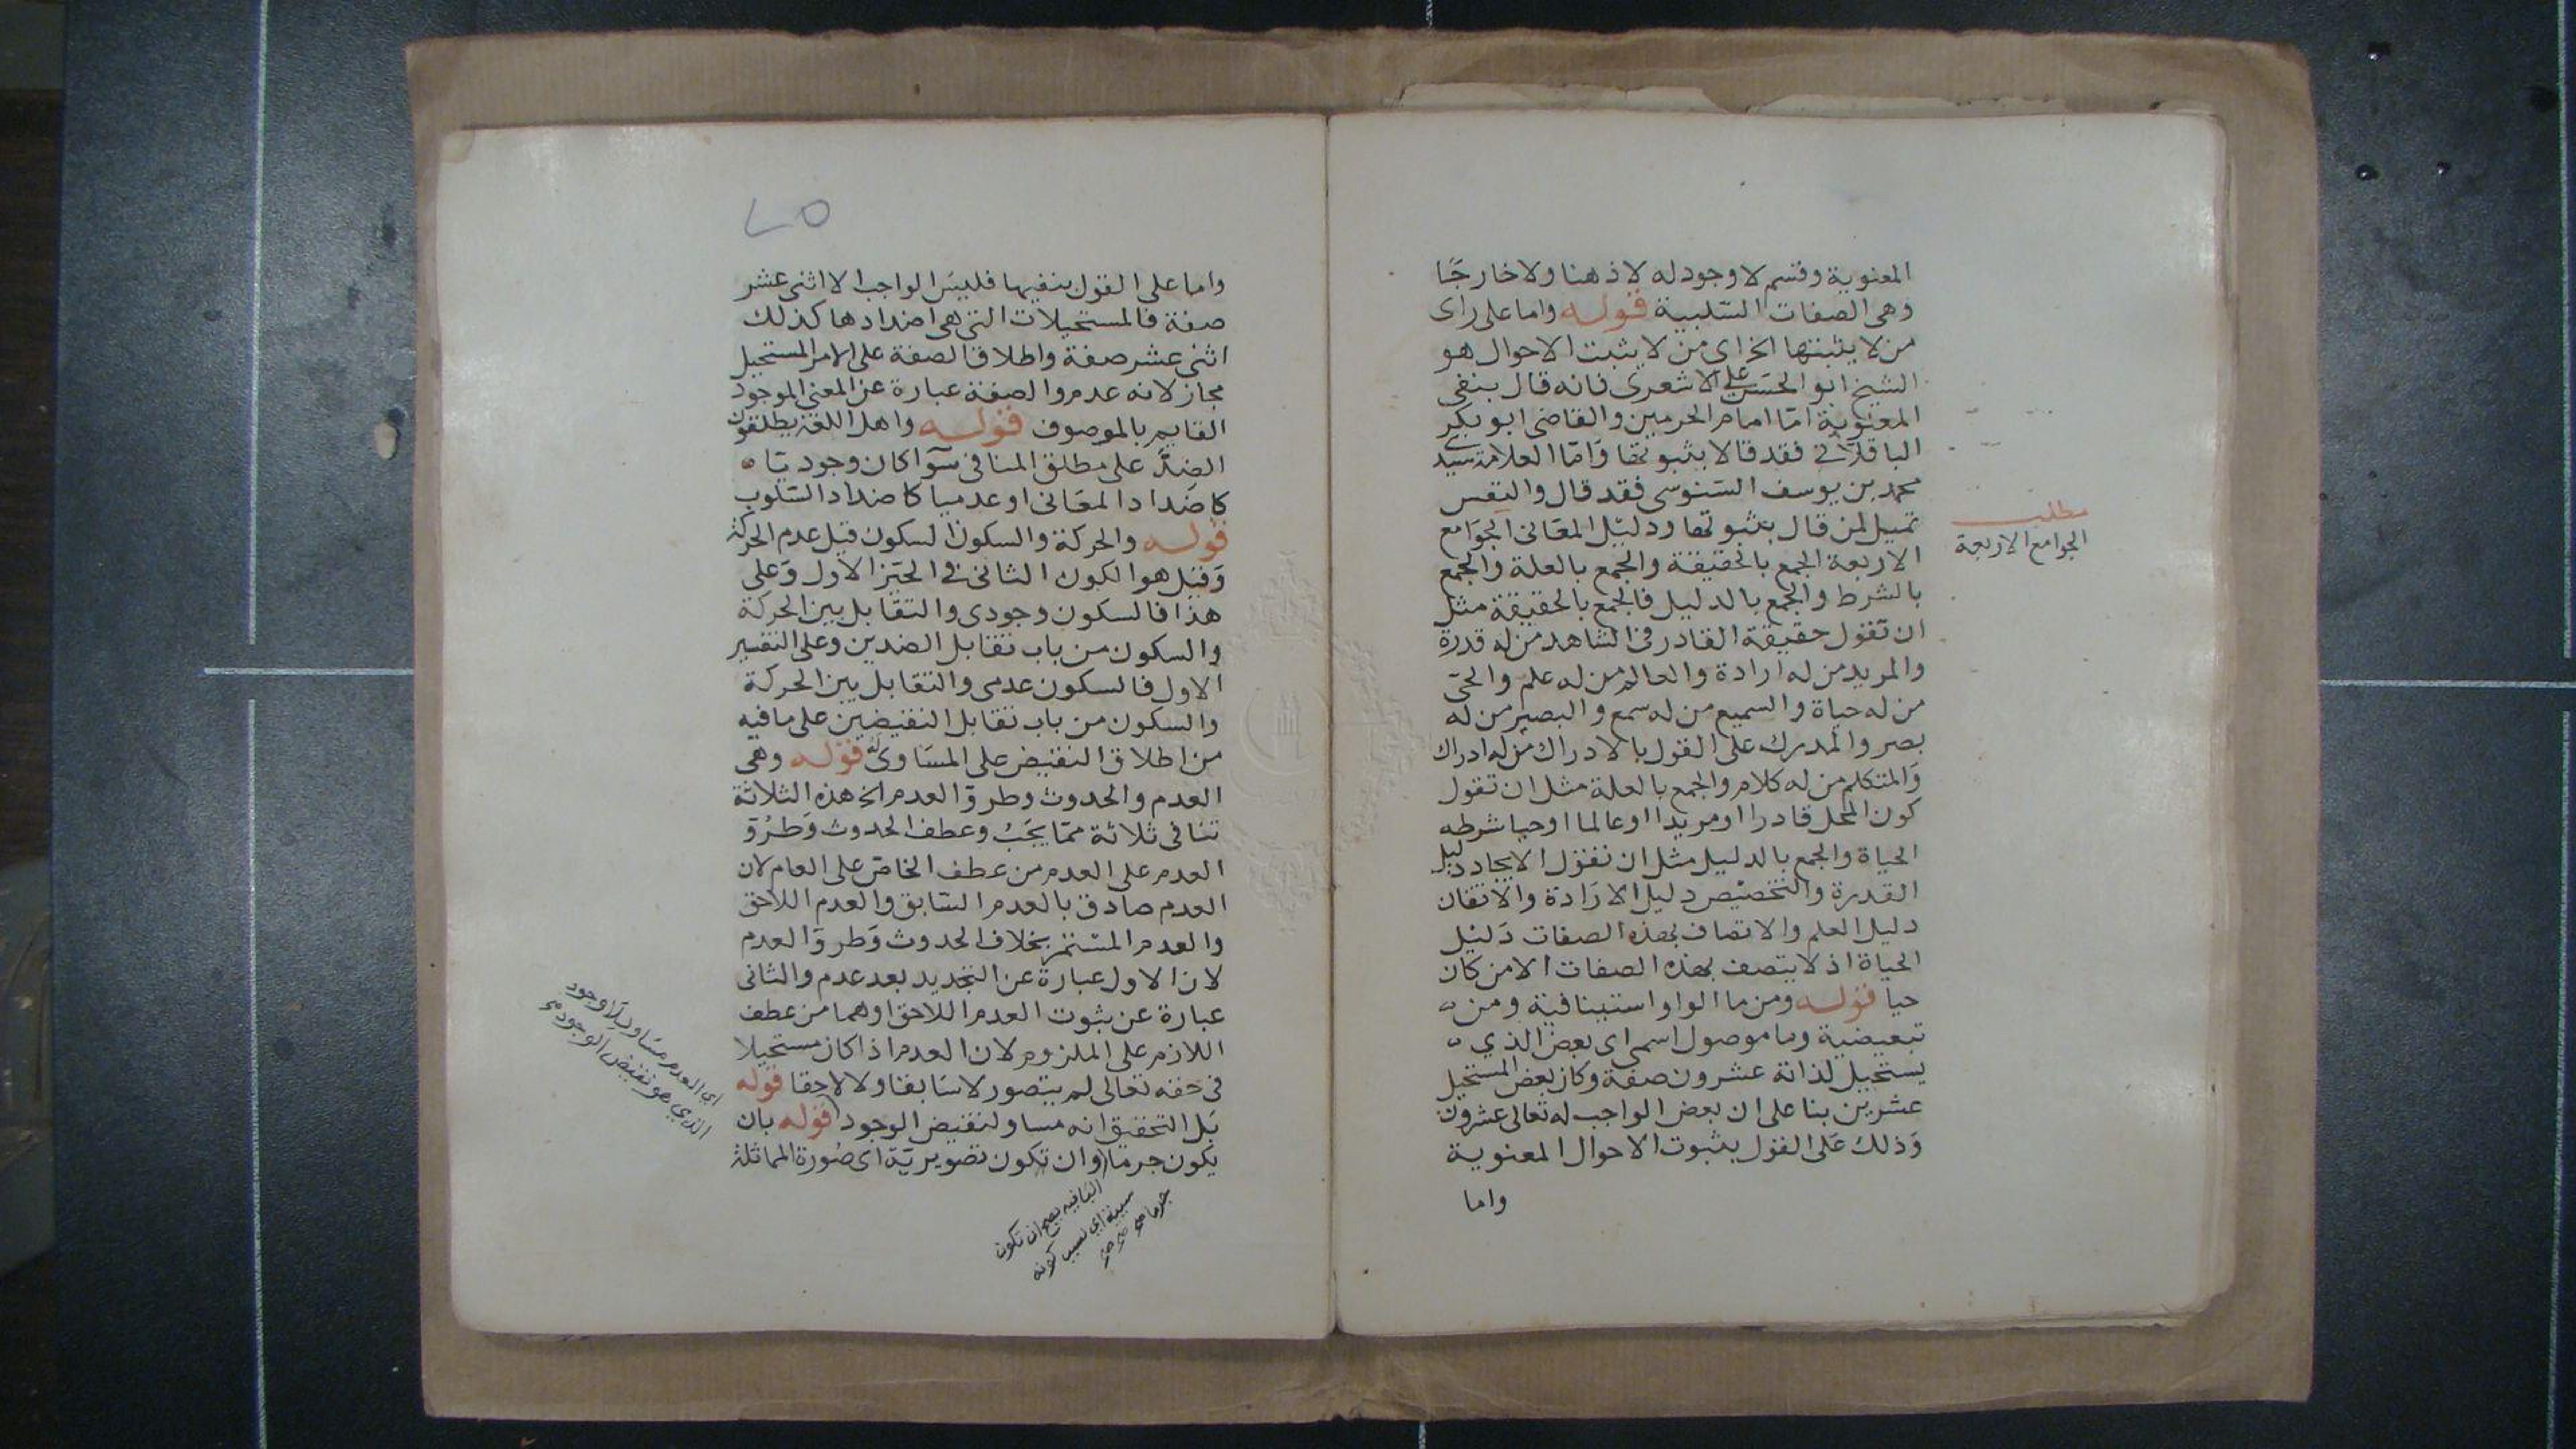 المعنوية وقسم لا وجود له لا ذهنا ولا خارجا
وهى الصفات السلبية قوله واما على راى
من لا يثبتها الخ اى من لا يثبت الاحوال هو
الشيخ ابو الحسن على الاشعرى فانه قال بنفى
المعنوية امّا امام الحرمين والقاضى ابو بكر
الباقلانى فقد قالا بثبوتها وامّا العلامة سيدى
محمد بن يوسف السنوسى فقد قال والنفس
تميل لمن قال بثبوتها ودليل المعانى الجوامع
الاربعة الجمع بالحقيقة والجمع بالعلة والجمع
بالشرط والجمع بالدليل فالجمع بالحقيقة مثل
ان تقول حقيقة القادر فى الشاهد من له قدرة
والمريد من له ارادة والعالم من له علم والحىّ
من له حياة والسميع من له سمع والبصير من له
بصر والمدرك على القول بالادراك من له ادراك
والمتكلم من له كلام والجمع بالعلة مثل ان تقول
كون المحل قادرا او مريدا او عالما او حيا شرطه
الحياة والجمع بالدليل مثل ان نقول الايجاد دليل
القدرة والتخصيص دليل الارادة والاتقان
دليل العلم والاتصاف بهذه الصفات دليل
الحياة اذ لا يتصف بهذه الصفات الا من كان
حيا قوله ومن ما الواو استينافية ومن
تبعيضية وما موصول اسمى اى بعض الذي
يستحيل لذاته عشرون صفة وكان بعض المستحيل
عشرين بنا على ان بعض الواجب له تعالى عشرون
وذلك على القول بثبوت الاحوال المعنوية
واما
مطلب
الجوامع الاربعة
٢٥
واما على القول بنفيها فليس الواجب الا اثنى عشر
صفة فالمستحيلات التى هى اضدادها كذلك
اثنى عشر صفة واطلاق الصفة على الامر المستحيل
مجاز لانه عدم والصفة عبارة عن المعنى الموجود
القايم بالموصوف قوله واهل اللغة يطلقون
الضدّ على مطلق المنافى سوآ كان وجوديّا
كاضداد المعانى او عدميا كاضداد السلوب
قوله والحركة والسكون السكون قيل عدم الحركة
وقيل هو الكون الثانى فى الحيّز الاول وعلى
هذا فالسكون وجودى والتقابل بين الحركة
والسكون من باب تقابل الضدين وعلى التفسير
الاول فالسكون عدمى والتقابل بين الحركة
والسكون من باب تقابل النقيضين على ما فيه
من اطلاق النقيض على المساوى له قوله وهى
العدم والحدوث وطروّ العدم الخ هذه الثلاثة
تنافى ثلاثة ممّا يجب وعطف الحدوث وطروّ
العدم على العدم من عطف الخاص على العام لان
العدم صادق بالعدم السّابق والعدم اللاحق
والعدم المستمر بخلاف الحدوث وطروّ العدم
لان الاول عبارة عن التجديد بعد عدم والثانى
عبارة عن ثبوت العدم اللاحق او هما من عطف
اللازم على الملزوم لان العدم اذا كان مستحيلا
فى حقه تعالى لم يتصور لا سابقا ولا لاحقا قوله
بل التحقيق انه مساو لنقيض الوجود قوله بان
يكون جرما وان تكون تصويريّة اى صورة المماثلة
اي العدم مساو بلا وجود
الذي هو نقيض الوجود
البا فيه يصح ان تكون
سببية اي بسبب كونه
جرما